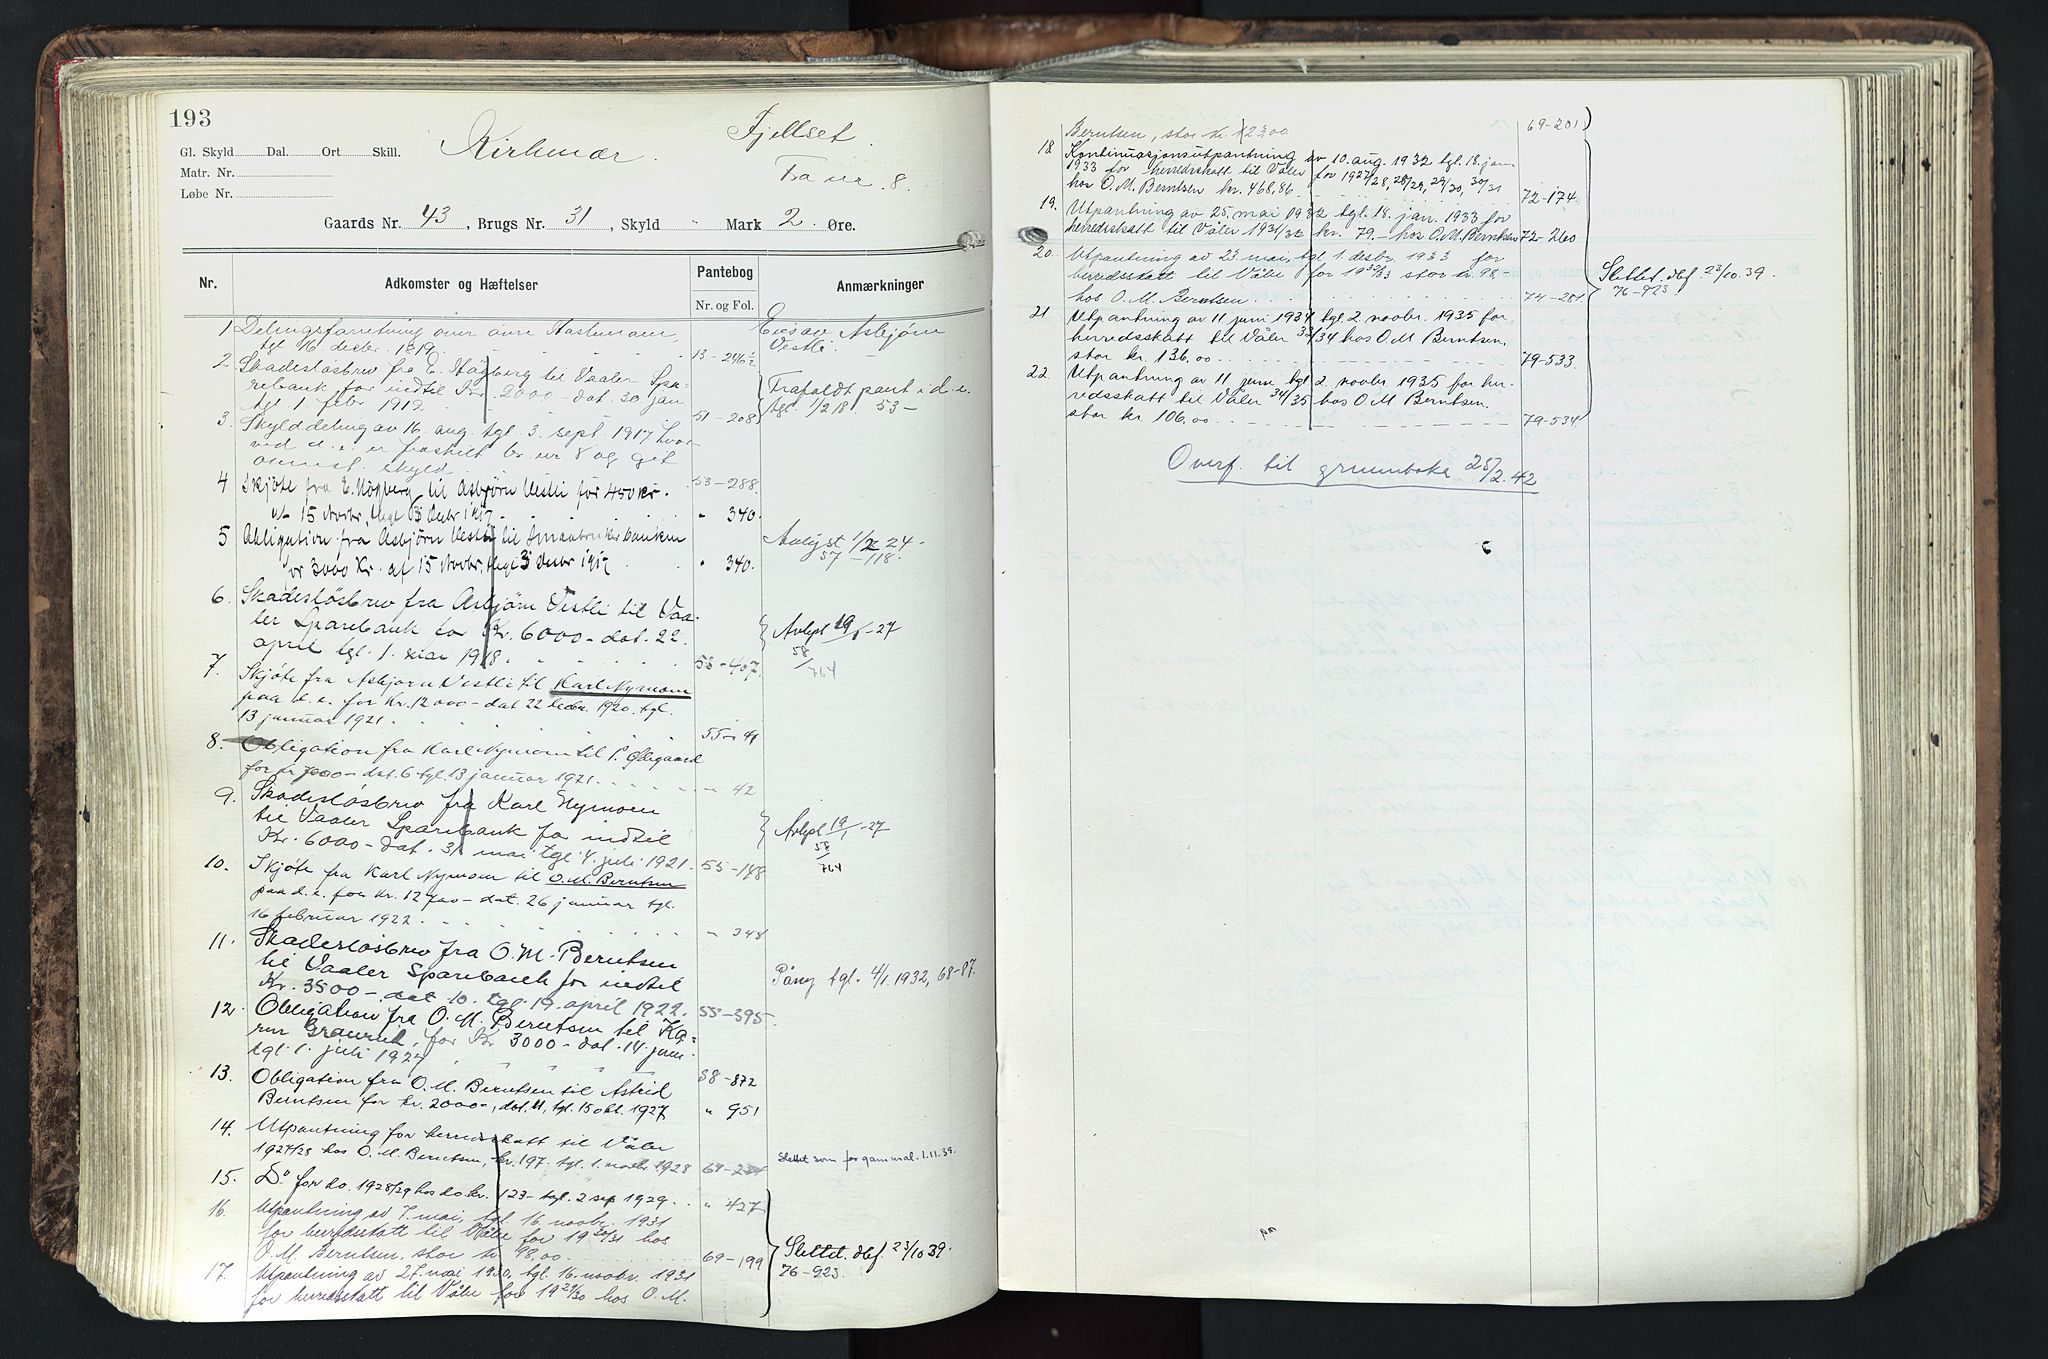 193
Gl. Skyld Dal. Ort Skill. Kirkenær. Fjellset.
Matr. Nr. Fra nr. 8.
Løbe Nr.
Gaards Nr. 43, Brugs Nr. 31, Skyld " Mark 2 Øre.
Nr. Adkomster og Hæftelser Pantebog Anmærkninger
Nr. og Fol.
1 Delingsforretning over øvre Aasteneien,
tgl. 16. desbr. 1819. 13-246½
Eies av Asbjørn
Vestli.
2. Skadesløsbrev fra E. Høgberg til Vaaler Spa-
rebank for indtil Kr. 2000- dat. 30 jan
tgl. 1. febr. 1912. 51-208
Frafaldt pant i d. e.
tgl. 1/2 18. 53-
3. Skylddeling av 16. aug. tgl. 3. sept. 1917 hvor-
ved d. e. er fraskilt br. nr. 8 og get
anmst. skyld. 53-288.
4 Skjöte fra E. Högberg til Asbjörn Vestli for 450 kr.
af 15 Novbr, tingl. 3 Decbr 1917 " 340.
5 Obligation fra Asbjörn Vestli til Smaabrukerbanken
for 3000 Kr. af 15 Novbr, tingl 3 Decbr 1917 " 340.
Avlyst 1/2 24.
57-118.
6. Skadesløsbrev fra Asbjørn Vestli til Vaa-
ler Sparebank for Kr. 6000- dat. 22.
april tgl. 1. mai 1918. 53-407.
Avlyst 19/1-27
58/764
7. Skjøte fra Asbjørn Vestli til Karl Nymoen
paa d. e. for Kr. 12 000- dat 22 decbr. 1920. tgl.
13 januar 1921. 55-41
8. Obligation fra Karl Nymoen til P. Ødegaard
for kr 7000- dat. 6 tgl. 13 januar 1921. " 42
9. Skadesløsbrev fra Karl Nymoen
til Vaaler Sparebank for indtil
Kr. 6000- dat. 31 mai tgl. 4. juli 1921. 55-148
Avlyst 19/1-27
58/764
10. Skjøte fra Karl Nymoen til O.M. Berntsen
paa d. e. for kr. 12 700- dat. 26 januar tgl.
16 februar 1922. " 348
11. Skadesløsbrev fra O. M. Berntsen
til Vaaler Sparebank for indtil
Kr. 3500- dat 10. tgl. 19. april 1922. 55-395.
Påny tgl. 4/1. 1932, 68-87.
12. Obligation fra O. M. Berntsen til Ka-
ren for Kr 3000- dat. 14. juni
tgl. 1. juli 1927 58-872
13. Obligation fra O. M. Berntsen til Astrid
Berntsen for kr. 2000-, dat. 11, tgl. 15 okt. 1927 " 951
14. Utpantning for herredsskatt til Våler
1927/28 hos O. M. Berntsen, kr. 197. tgl. 1. novbr 1928
Slettet som for gammal. 1.11.39.
15. Do for do. 1928/29 hos do kr. 123- tgl. 2 sep 1929. " 427
16. Utpantning av 7. mai, tgl. 16. novbr. 1931
for herredsskatt til Våler for 1930/31 hos
O. M. Berntsen, stor kr 98.00 69-199
Slettet. dbf. 23/10 39.
76-923.
17. Utpantning av 27. mai 1930, tgl. 16. novbr. 1931
for herredsskatt til Våler for 1929/30 hos O. M.
Berntsen, stor kr. 123,00 69-201
18 Kontinuasjonsutpantning av 10. aug. 1932 tgl. 18. jan.
1933 for herredsskatt til Våler for 1927/28, 28/29, 29/30, 30/31
hos O. M. Berntsen kr. 468,86. 72-174.
19. Utpantning av 25. mai 1932 tgl. 18. jan. 1933 for
herredsskatt til Våler 1931/32 kr. 79.- hos O.M. Berntsen 72-260
20. Utpantning av 23 mai, tgl 1. desbr. 1933 for
herredsskatt til Våler for 1932/33 stor kr. 98,-
hos O. M. Berntsen. 74-281
Slettet. dbf. 23/10.39.
76-923
21 Utpantning av 11 juni 1934 tgl. 2. novbr. 1935 for
herredsskatt til Våler 33/34 hos O. M. Berntsen.
stor kr. 136.00 79-533
22. Utpantning av 11 juni tgl 2. novbr. 1935 for her-
redsskatt til Våler 34/35 hos O. M. Berntsen.
stor kr. 106.00 79-534
Overf. til grunnboka 25/2.42